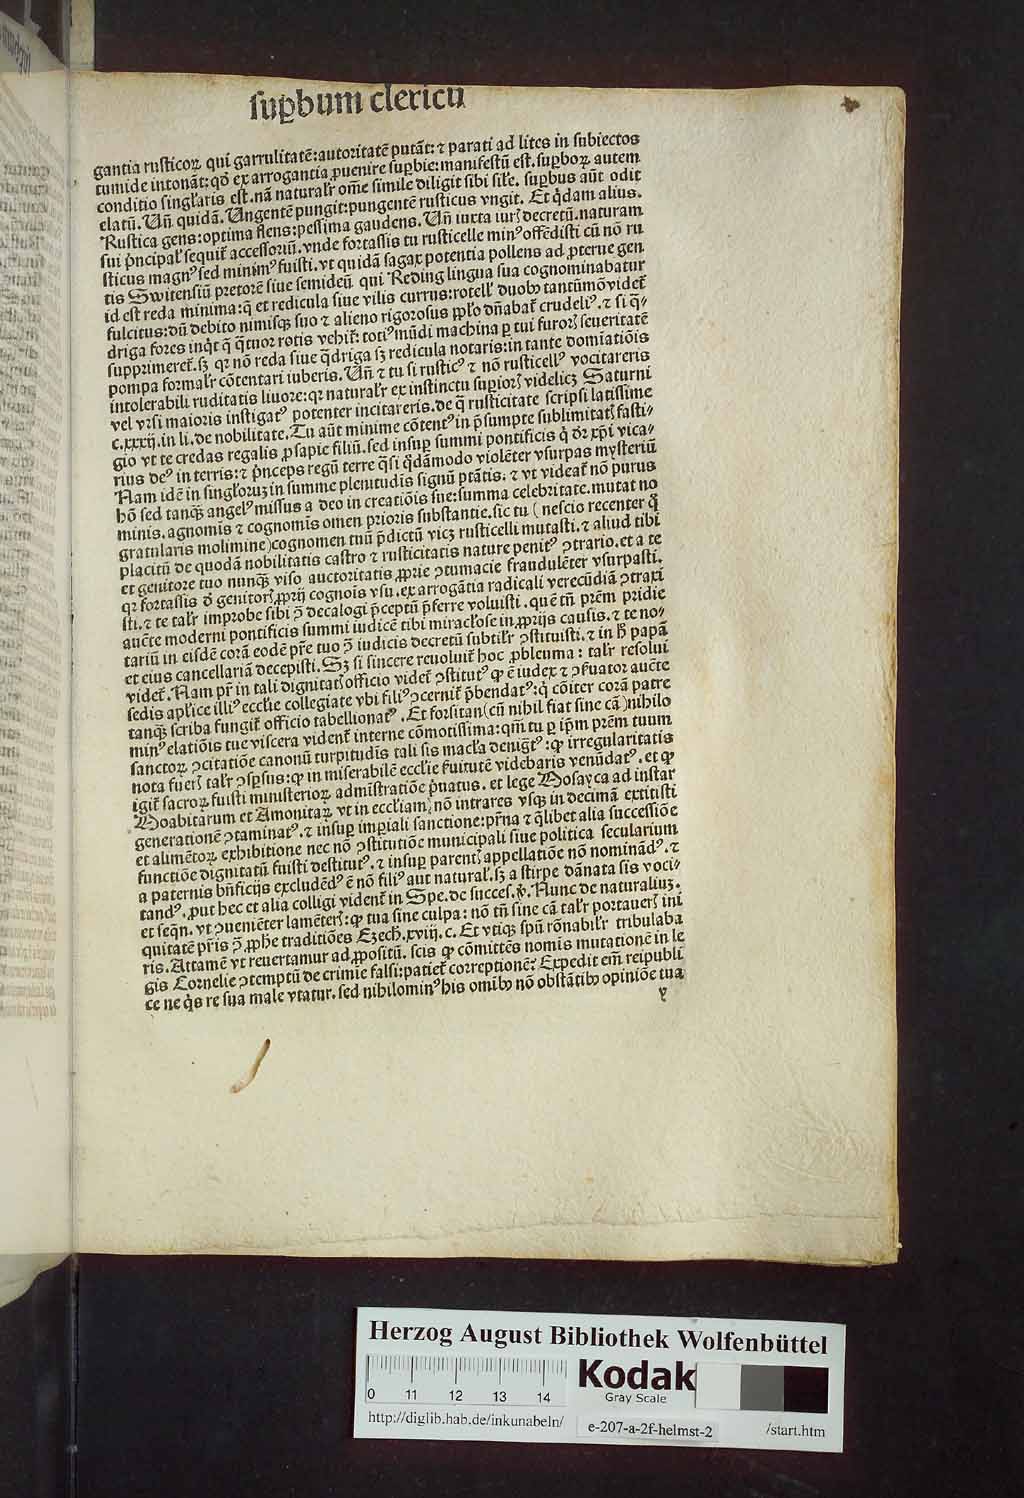 sup̱bum clericū
gantia rusticoꝝ qui garrulitatē: autoritatē putāt: ⁊ parati ad lites in subiectos
tumide intonāt: qd̄ ex arrogantia ꝓuenire sup̱bie: manifestū est. sup̱boꝝ autem
conditio singl̓aris est. nā naturalr̓ om̄e simile diligit sibi sil̓e. sup̱bus aūt odit
elatū. Un̄ quidā. Ungentē pungit: pungentē rusticus vngit. Et q̇dam alius.
Rustica gens: optima flens: pessima gaudens. Un̄ iuxta iurꝭ decretū. naturam
sui p̄ncipal̓ sequit᷑ accessoriū. vnde fortassis tu rusticelle minꝰ offēdisti cū nō ru
sticus magnꝰ sed minimꝰ fuisti. vt quidā sagax potentia pollens ad ꝓterue gen
tis Switensiū pretorē siue semideū qui Reding lingua sua cognominabatur
id est reda minima: q̄ et redicula siue vilis currus: rotell̓ duobꝰ tantūmō videt᷑
fulcitus: dū debito nimisqꝫ suo ⁊ alieno rigorosus ppl̓o dn̄abat᷑ crudeliꝰ. ⁊ si q̄-
driga fores inq̇t q̄ q̄tuor rotis vehit᷑: totiꝰ mūdi machina ꝑ tui furorꝭ seueritatē
supprimeret᷑. sꝫ qꝛ nō reda siue q̄driga sꝫ redicula notaris: in tante domiatiōis
pompa formalr̓ cōtentari iuberis. Un̄ ⁊ tu si rusticꝰ ⁊ nō rusticellꝰ vocitareris
intolerabili ruditatis liuore: qꝛ naturalr̓ ex instinctu sup̱iorꝭ videlicꝫ Saturni
vel vrsi maioris instigatꝰ potenter incitareris. de q̄ rusticitate scripsi latissime
c. xxxij. in li. de nobilitate. Tu aūt minime cōtentꝰ in p̄sumpte sublimitatꝭ fasti-
gio vt te credas regalis ꝓsapie filiū. sed insup̱ summi pontificis q̇ dr̄ xp̄i vica-
rius deꝰ in terris: ⁊ p̄nceps regū terre q̄si q̇dāmodo violēter vsurpas mysteriū
Nam idē in singl̓oruꝫ in summe plenitudis signū ptātis. ⁊ vt videat᷑ nō purus
hō sed tanqꝫ angelꝰ missus a deo in creatiōis sue: summa celebritate. mutat no
minis. agnomīs ⁊ cognomīs omen prioris substantie. sic tu ( nescio recenter q̇
gratularis molimine) cognomen tuū p̄dictū vicꝫ rusticelli mutasti. ⁊ aliud tibi
placitū de quodā nobilitatis castro ⁊ rusticitatis nature penitꝰ ꝯtrario. et a te
et genitore tuo nunqꝫ viso auctoritatis ꝓprie ꝯtumacie fraudulēter vsurpasti.
qꝛ fortassis d̄ genitorꝭ ꝓprij cognoīs vsu. ex arrogātia radicali verecūdiā ꝯtraxi
sti. ⁊ te talr̓ improbe sibi ꝯ̄ decalogi p̄ceptū p̄ferre voluisti. quē tn̄ prēm pridie
auēte moderni pontificis summi iudicē tibi miracl̓ose in ꝓprijs causis. ⁊ te no-
tariū in eisdē corā eodē pr̄e tuo ꝯ̄ iudicis decretū subtilr̓ ꝯstituisti. ⁊ in hꝭ papā
et eius cancellariā decepisti. Sꝫ si sincere reuoluit᷑ hoc ꝓbleuma: talr̓ resolui
videt᷑. Nam pr̄ in tali dignitatꝭ officio videt᷑ ꝯstitutꝰ qꝫ ē iudex ⁊ ꝯẜuator auēte
sedis apl̓ice illiꝰ eccl̓ie collegiate vbi filiꝰ ꝯcernit᷑ p̄bendatꝰ: q̇ cōiter corā patre
tanqꝫ scriba fungit᷑ officio tabellionatꝰ. Et forsitan (cū nihil fiat sine cā) nihilo
minꝰ elatiōis tue viscera vident᷑ interne cōmotissima: qm̄ tu ꝑ ip̄m prēm tuum
sanctoꝝ ꝯcitatiōe canonū turpitudīs tali sis macl̓a denigr̄tꝰ: qꝫ irregularitatis
nota fuerꝭ talr̓ ꝯsp̱sus: qꝫ in miserabilē eccl̓ie ẜuitutē videbaris venūdatꝰ. et qꝫ
igit᷑ sacroꝝ fuisti ministerioꝝ admīstratiōe p̄uatus. et lege Mosayca ad instar
Moabitarum et Amonitaꝝ vt in eccl̓iam nō intrares vsqꝫ in decimā extitisti
generationē ꝯtaminatꝰ. ⁊ insup̱ imp̱iali sanctione: pr̄na ⁊ q̄libet alia successiōe
et alimētoꝝ exhibitione nec nō ꝯstitutiōe municipali siue politica secularium
functiōe dignitatū fuisti destitutꝰ. ⁊ insup̱ parentꝭ appellatiōe nō nominādꝰ. ⁊
a paternis bn̄ficijs excludēdꝰ ē nō filiꝰ aut natural̓. sꝫ a stirpe dānata sis voci-
tandꝰ. ꝓut hec et alia colligi vident᷑ in Spe. de succes. Nunc de naturaliuꝫ.
et seqn̄. vt ꝯueniēter lamēterꝭ: qꝫ tua sine culpa: nō tn̄ sine cā talr̓ portauerꝭ ini
quitatē pr̄is ꝯ̄ ꝓphe traditiōes Ezech. xviij. c. Et vtiqꝫ spū rōnabilr̓ tribulaba
ris. Attamē vt reuertamur ad ꝓpositū. scis qꝫ cōmittēs nomis mutationē in le
gis Cornelie ꝯtemptū de crimie falsi: patiet᷑ correptionē? Expedit em̄ reipubli
ce ne q̇s re sua male vtatur. sed nihilominꝰ his omībꝰ nō obstātibꝰ opiniōe tua
y
Herzog August Bibliothek Wolfenbüttel
0 11 12 13 14
Kodak
Gray Scale
http://diglib.hab.de/inkunabeln/ e-207-a-2f-helmst-2 /start.htm